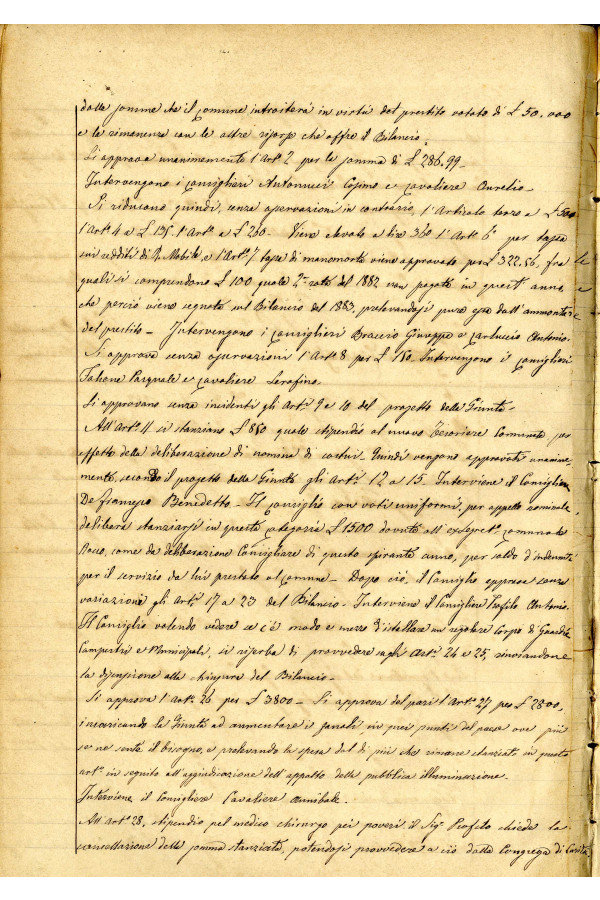 dalle somme che il Comune introiterà in virtù del prestito votato di £ 50,000
e le rimanenze con le altre risorse che offre il Bilancio.
Si approva unanimemente l'Art.º 2 per la somma di £ 286.99.
Intervengono i Consiglieri Antonucci Cosimo e Cavaliere Aurelio.
Si riducono quindi, senza osservazioni in contrario, l'Articolo terzo a £ 500
l'Art.º 4 a £ 135. l'Art.º a £ 260. Viene elevato a lire 360 l'Art.º 6º per tassa
sui redditi di R. Mobile e l'Art.º 7, tassa di manomorta viene approvato per £ 322.56, fra le
quali si comprendono £ 100 quale 2ª rata del 1882 non pagata in quest'anno, e
che perciò viene segnata sul Bilancio del 1883, prelevandosi pure essa dall'ammontare
del prestito. Intervengono i Consiglieri Braccio Giuseppe e Carluccio Antonio.
Si approva senza osservazioni l'Art.º 8 per £ 150. Intervengono i Consiglieri
Falcone Pasquale e Cavaliere Serafino.
Si approvano senza incidenti gli Art.i 9 e 10 del progetto della Giunta.
All'Art.º 11 si stanziano £ 850 quale stipendio al nuovo Tesoriere Comunale, per
effetto della deliberazione di nomina di costui. Quindi vengono approvati unanime-
mente, secondo il progetto della Giunta gli Art.i 12 a 15. Interviene il Consigliere
De Benedetto. Il Consiglio con voti uniformi, per appello nominale,
delibera stanziarsi in questa categoria £ 1500 dovute all'ex Segret.º Comunale
Rocco, come da deliberazione Consigliare di questo spirante anno, per saldo d'indennità
per il servizio da lui prestato al Comune. Dopo ciò, il Consiglio approva senza
variazione gli Art.i 17 a 23 del Bilancio. Interviene il Consigliere Profilo Antonio.
Il Consiglio volendo vedere se c'è modo e mezzo d'istallare un regolare Corpo di Guardie
Campestri e Municipali, si riserba di provvedere sugli Art.i 24 e 25, rinviandone
la discussione alla chiusura del Bilancio.
Si approva l'Art.º 26 per £ 3800. Si approva del pari l'Art.º 27 per £ 2800,
incaricando la Giunta ad aumentare i fanali in quei punti del paese ove più
se ne senta il bisogno, e prelevando la spesa dal di più che rimane stanziato in questo
art.º in seguito all'aggiudicazione dell'appalto della pubblica illuminazione.
Interviene il Consigliere Cavaliere Annibale.
All'Art.º 28, stipendio pel medico chirurgo pei poveri il Sig.r Profilo chiede la
cancellazione della somma stanziata, potendosi provvedere a ciò dalla Congrega di Carità